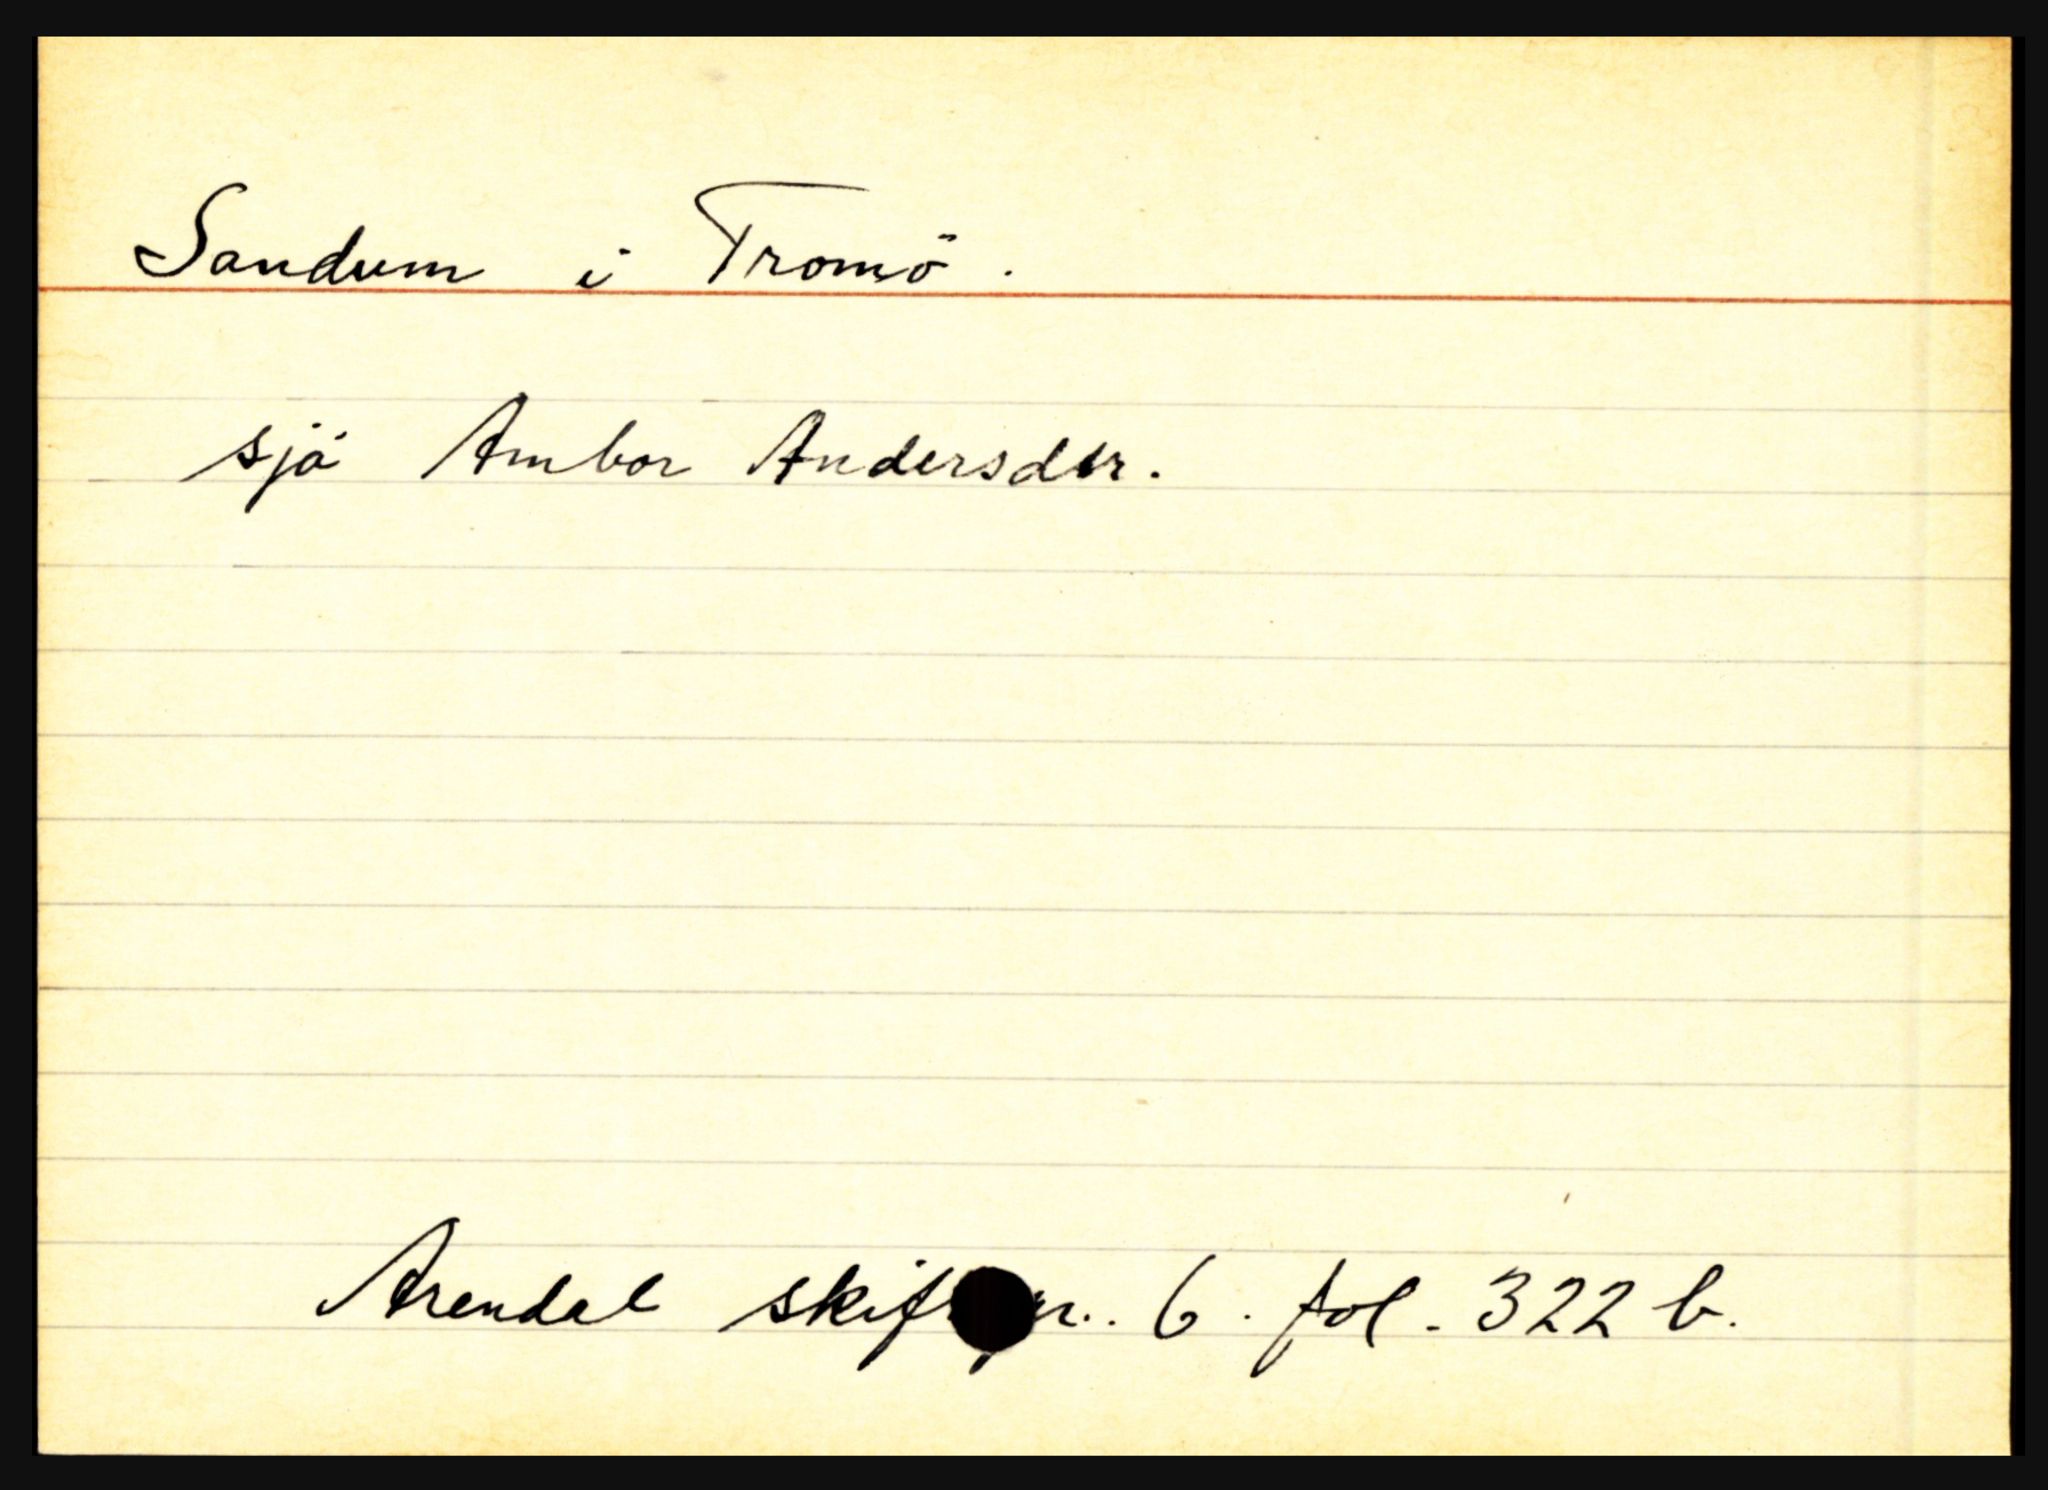 Sandum i Tromö.
sjå Ambor Andersdtr.
Arendal 6. fol. 322 b.